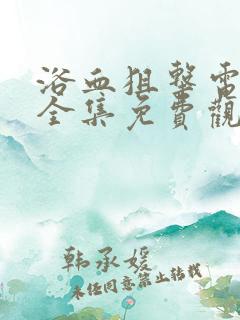 浴血狙擊電
全集免費觀
韩承媛
未经同意禁止转载